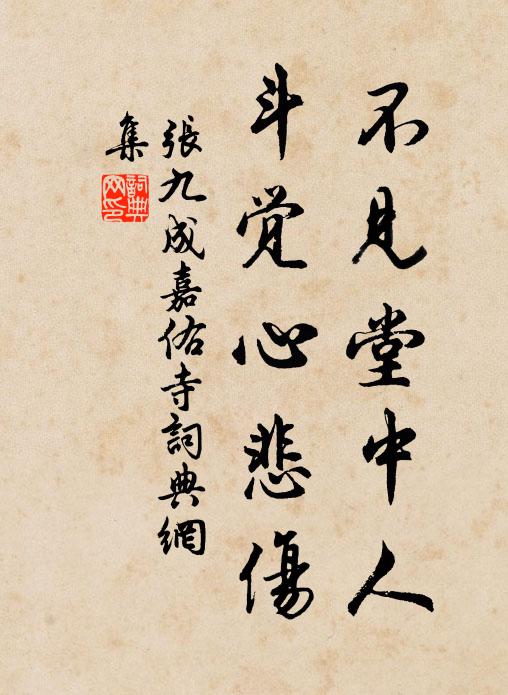 不見堂中人
斗觉心悲傷
張九成嘉佑寺詞典網
集
詞典网印